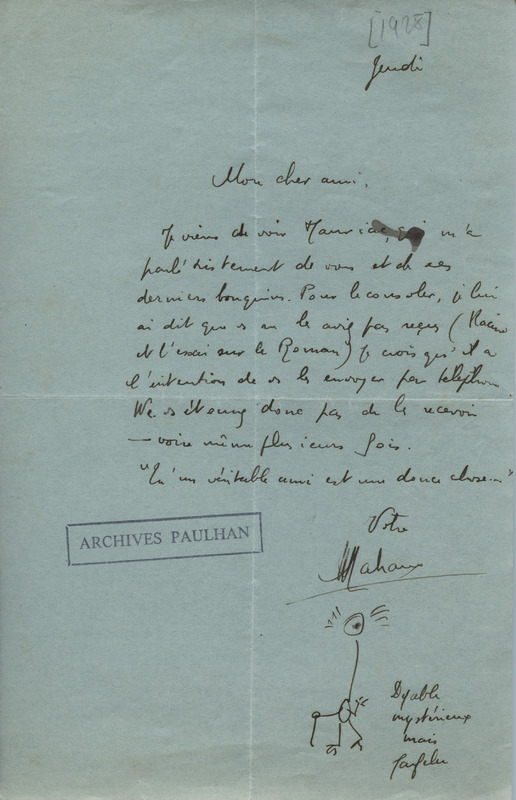 [1928]
Jeudi
Mon cher ami,
Je viens de voir Mauriac, qui m'a
parlé tristement de vous et de ses
derniers bouquins. Pour le consoler, je lui
ai dit que vs ne les aviez pas reçus (Racine
et l'essai sur le Roman) Je crois qu'il a
l'intention de vs les envoyer par téléphone.
Ne vs étonnez donc pas de les recevoir
— voire même plusieurs fois.
"Qu'un véritable ami est une douce chose..."
Votre
Malraux
ARCHIVES PAULHAN
Dyable
mystérieux
mais
farfelu